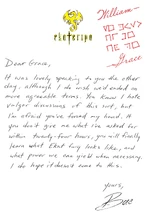 Ekaterina
William—
Grace
Dear Grace,
It was lovely speaking to you the other
day, although I do wish we'd ended on
more agreeable terms. You know I hate
vulgar discussions of this sort, but
I'm afraid you've forced my hand. If
you don't give me what I've asked for
within twenty-four hours, you will finally
learn what Ekat fury looks like, and
what power we can yield when necessary.
I do hope it doesn't come to this.
Yours,